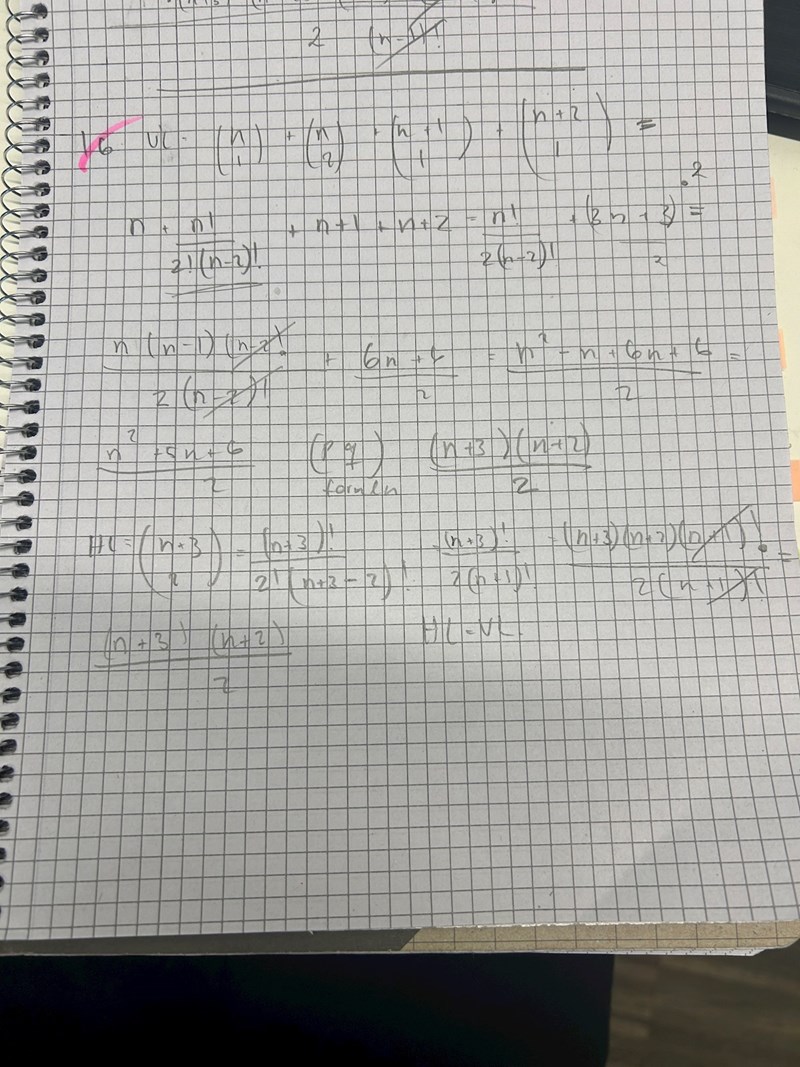 2 (n-1)!
16 VL = (n 1) + (n 2) + (n+1 1) + (n+2 1) =
n + n!/2!(n-2)! + n+1 + n+2 = n!/2(n-2)! + (3n+3)·2/2 =
n(n-1)(n-2)!/2(n-2)! + 6n+6/2 = n² - n + 6n + 6/2 =
n² + 5n + 6/2 (pq) formeln (n+3)(n+2)/2
HL = (n+3 2) = (n+3)!/2!(n+3-2)! = (n+3)!/2(n+1)! = (n+3)(n+2)(n+1)!/2(n+1)! =
(n+3)(n+2)/2 HL = VL